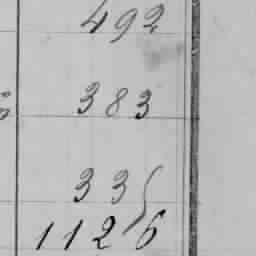 492
383
335
1126